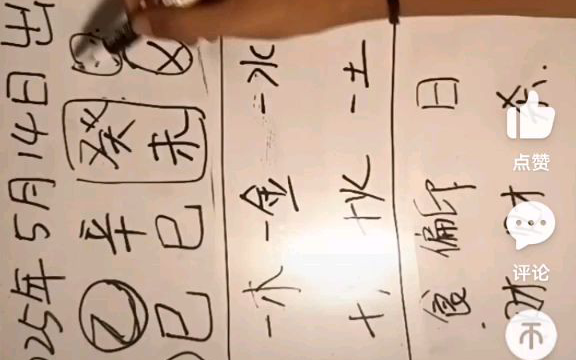 025年5月14日出
乙 辛 癸
巳 巳 未
一木 一金 二水
十火 一土
食 偏印 日
财 财 杀
点赞
评论
币